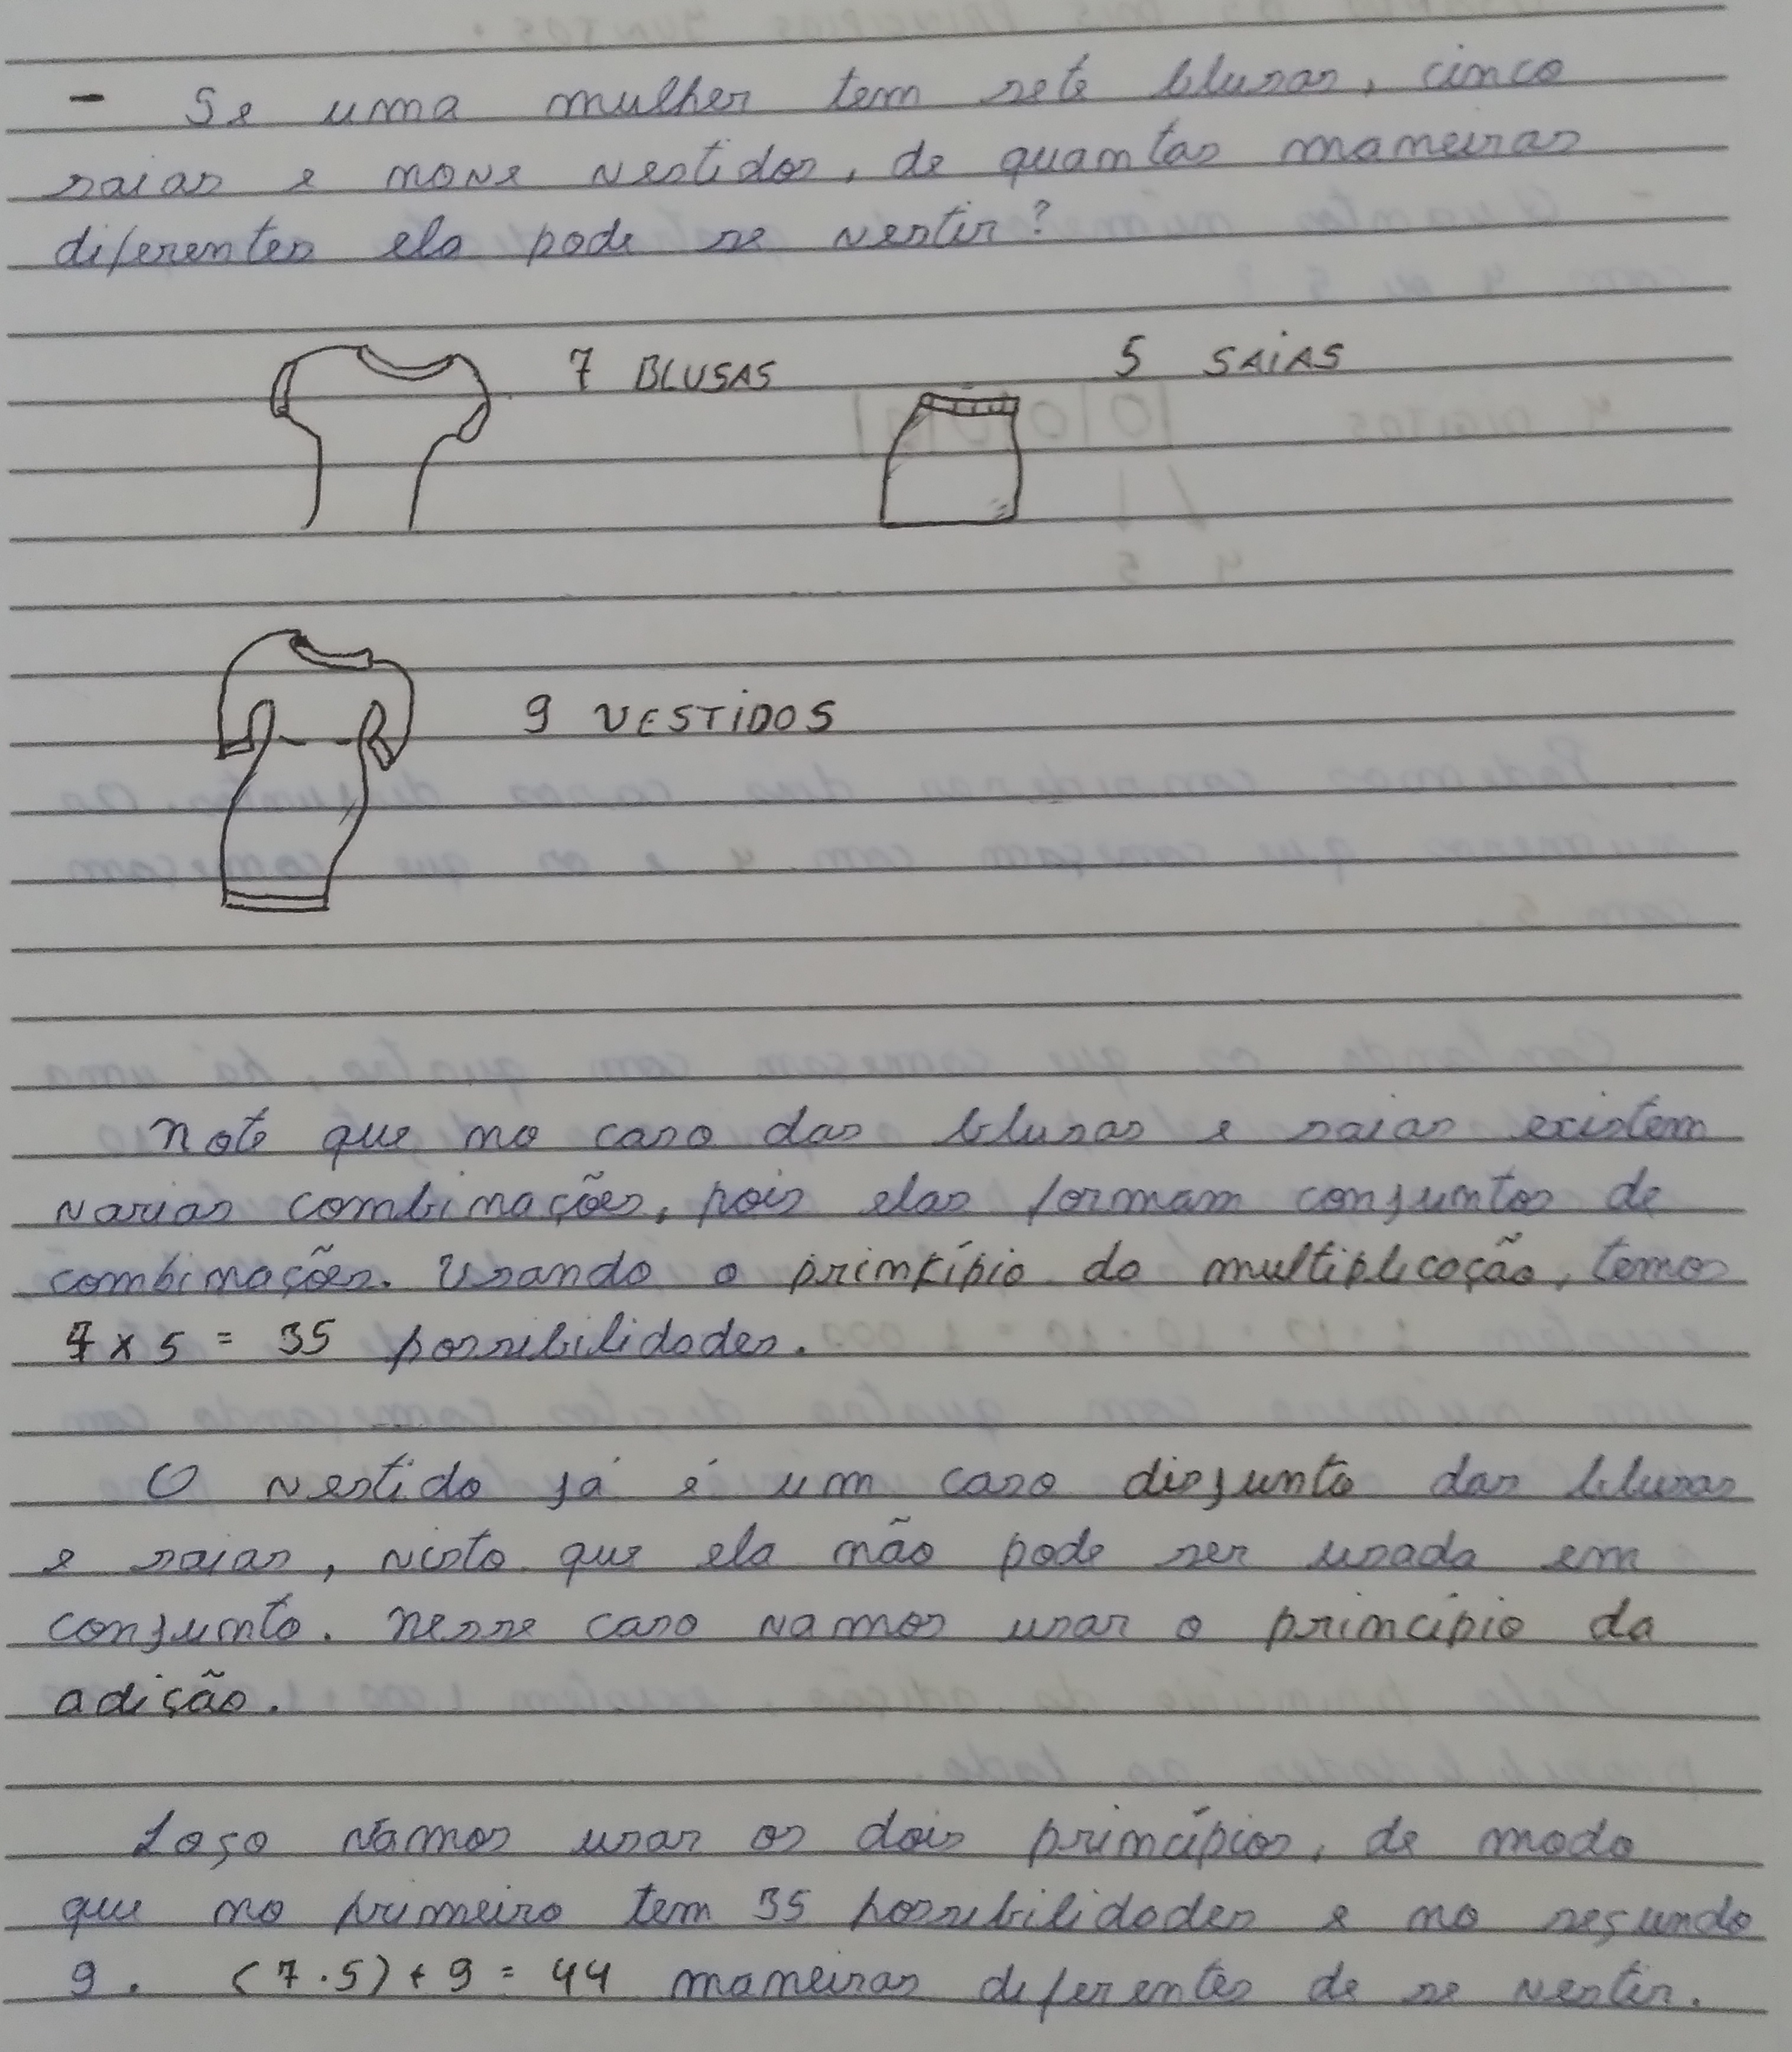 - Se uma mulher tem sete blusas, cinco
saias e nove vestidos, de quantas maneiras
diferentes ela pode se vestir?
7 BLUSAS 5 SAIAS
9 VESTIDOS
Note que no caso das blusas e saias existem
varias combinações, pois elas formam conjuntos de
combinações. Usando o prinkípio da multiplicação, temos
7 x 5 = 35 possibilidades.
O vestido já é um caso disjunto das blusas
e saias, visto que ela não pode ser usada em
conjunto. Nesse caso vamos usar o princípio da
adição.
Logo vamos usar os dois princípios, de modo
que no primeiro tem 35 possibilidades e no segundo
9. (7.5) + 9 = 44 maneiras diferentes de se vestir.